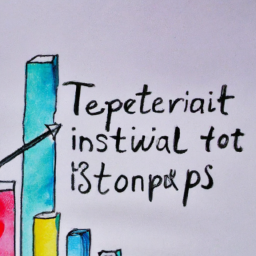 Tepeteriait
instiwal tot
iStonpx ps